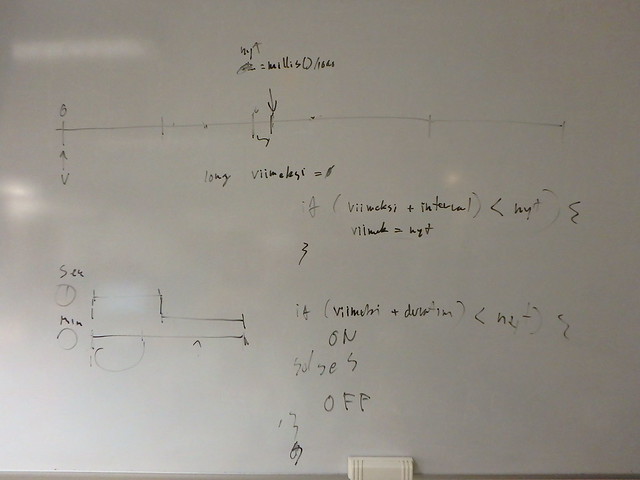 nyt
= millis()/1000
0
V
long viimeksi =
if (viimeksi + interval) < nyt) {
viimek = nyt
}
Sek
min
if (viimeksi + duration) < nyt) {
ON
} else {
OFF
}